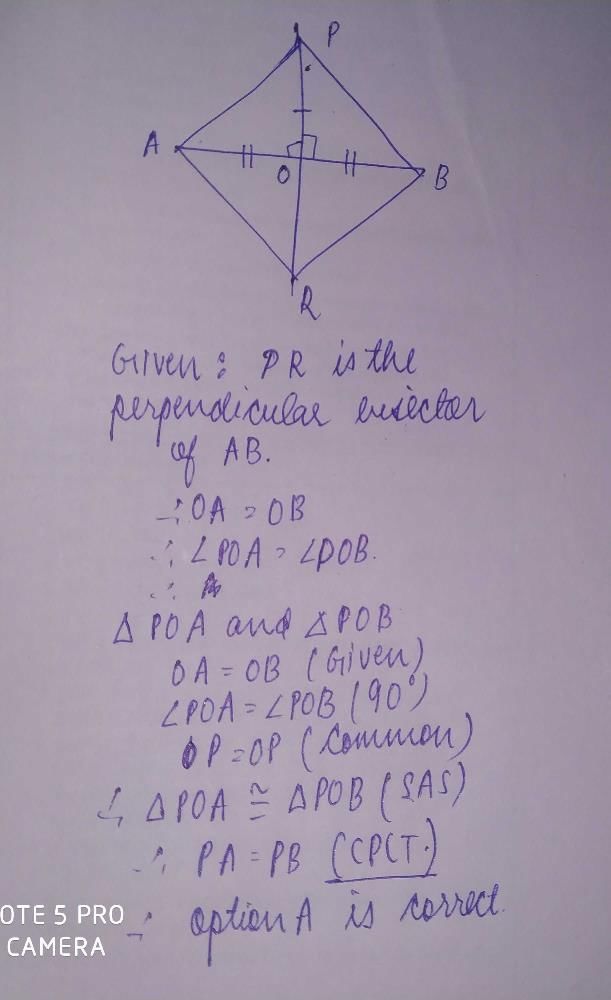 P
A
O
B
R
Given : PR is the
perpendicular bisector
of AB.
∴ OA = OB
∴ ∠POA = ∠POB.
∴
△ POA and △ POB
OA = OB (Given)
∠POA = ∠POB (90°)
OP = OP (Common)
∴ △ POA ≅ △ POB (SAS)
∴ PA = PB (CPCT.)
∴ option A is correct.
OTE 5 PRO
CAMERA